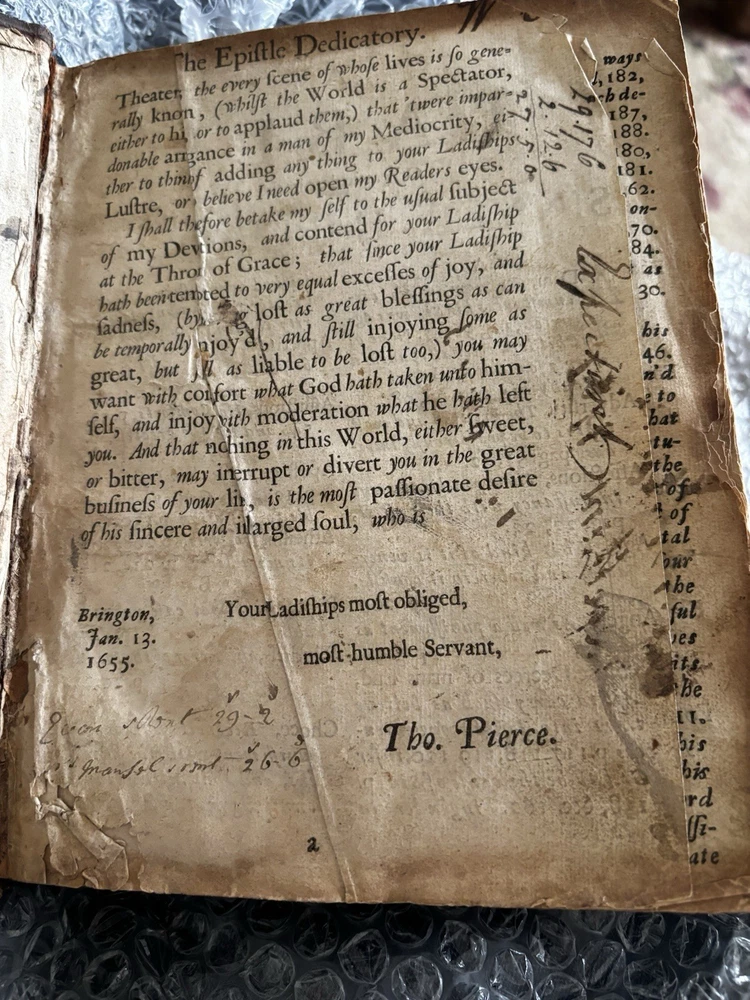 The Epiſtle Dedicatory.
Theater, the every ſcene of whoſe lives is ſo gene-
rally knon, (whilſt the World is a Spectator,
either to hi, or to applaud them,) that 'twere impar-
donable arrgance in a man of my Mediocrity, ei-
ther to thinſ adding any thing to your Ladiſhips
Luſtre, or believe I need open my Readers eyes.
I ſhall thefore betake my ſelf to the uſual ſubject
of my Devtions, and contend for your Ladiſhip
at the Thror of Grace; that ſince your Ladiſhip
hath been temted to very equal exceſſes of joy, and
ſadneſs, (by g loſt as great bleſſings as can
be temporally njoy'd, and ſtill injoying ſome as
great, but as liable to be loſt too,) you may
want with comfort what God hath taken unto him-
ſelf, and injoy with moderation what he hath left
you. And that nching in this World, either ſweet,
or bitter, may inerrupt or divert you in the great
buſineſs of your lif, is the moſt paſſionate deſire
of his ſincere and inlarged ſoul, who is
Your Ladiſhips moſt obliged,
moſt humble Servant,
Brington,
Jan. 13.
1655.
Tho. Pierce.
29-2
26-6
2
29 176
2 126
27
ways
,182,
ch de-
187,
188.
180,
181.
62.
on-
70.
84.
as
30.
his
46.
n'd
e to
hat
tu-
the
of
of
tal
our
he
ful
ves
its
he
11.
his
his
rd
ſſi-
ate